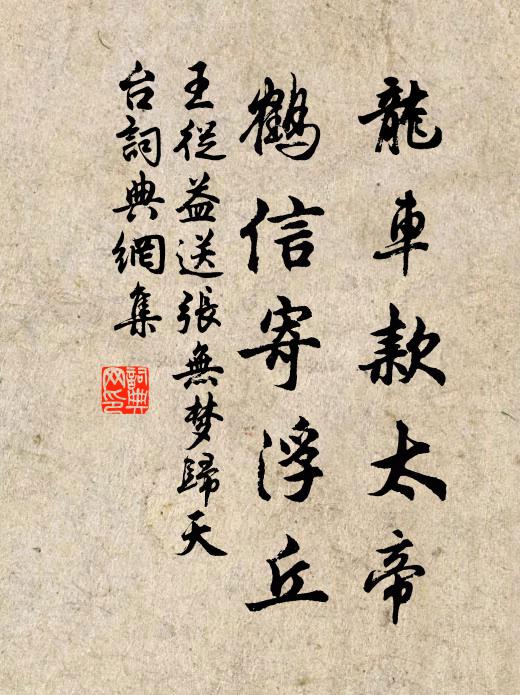 龍車款太帝
鶴信寄浮丘
王從益送張無梦歸天
台詞典網集
詞典
网印